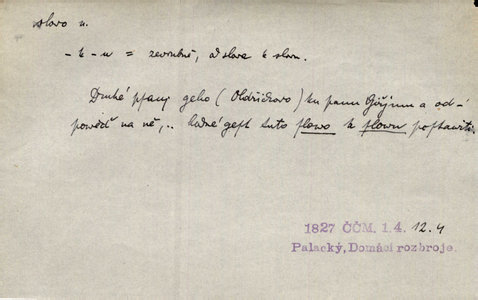 slovo n.
- k - u = zevrubně, od slova k slovu.
Druhé psanj geho (Oldřichovo) ku panu Giřjmu a od-
pověď na ně, .. hodné gest tuto slowo k slowu postaviti.
1827 ČČM. 1.4. 12.4
Palacký, Domácí rozbroje.